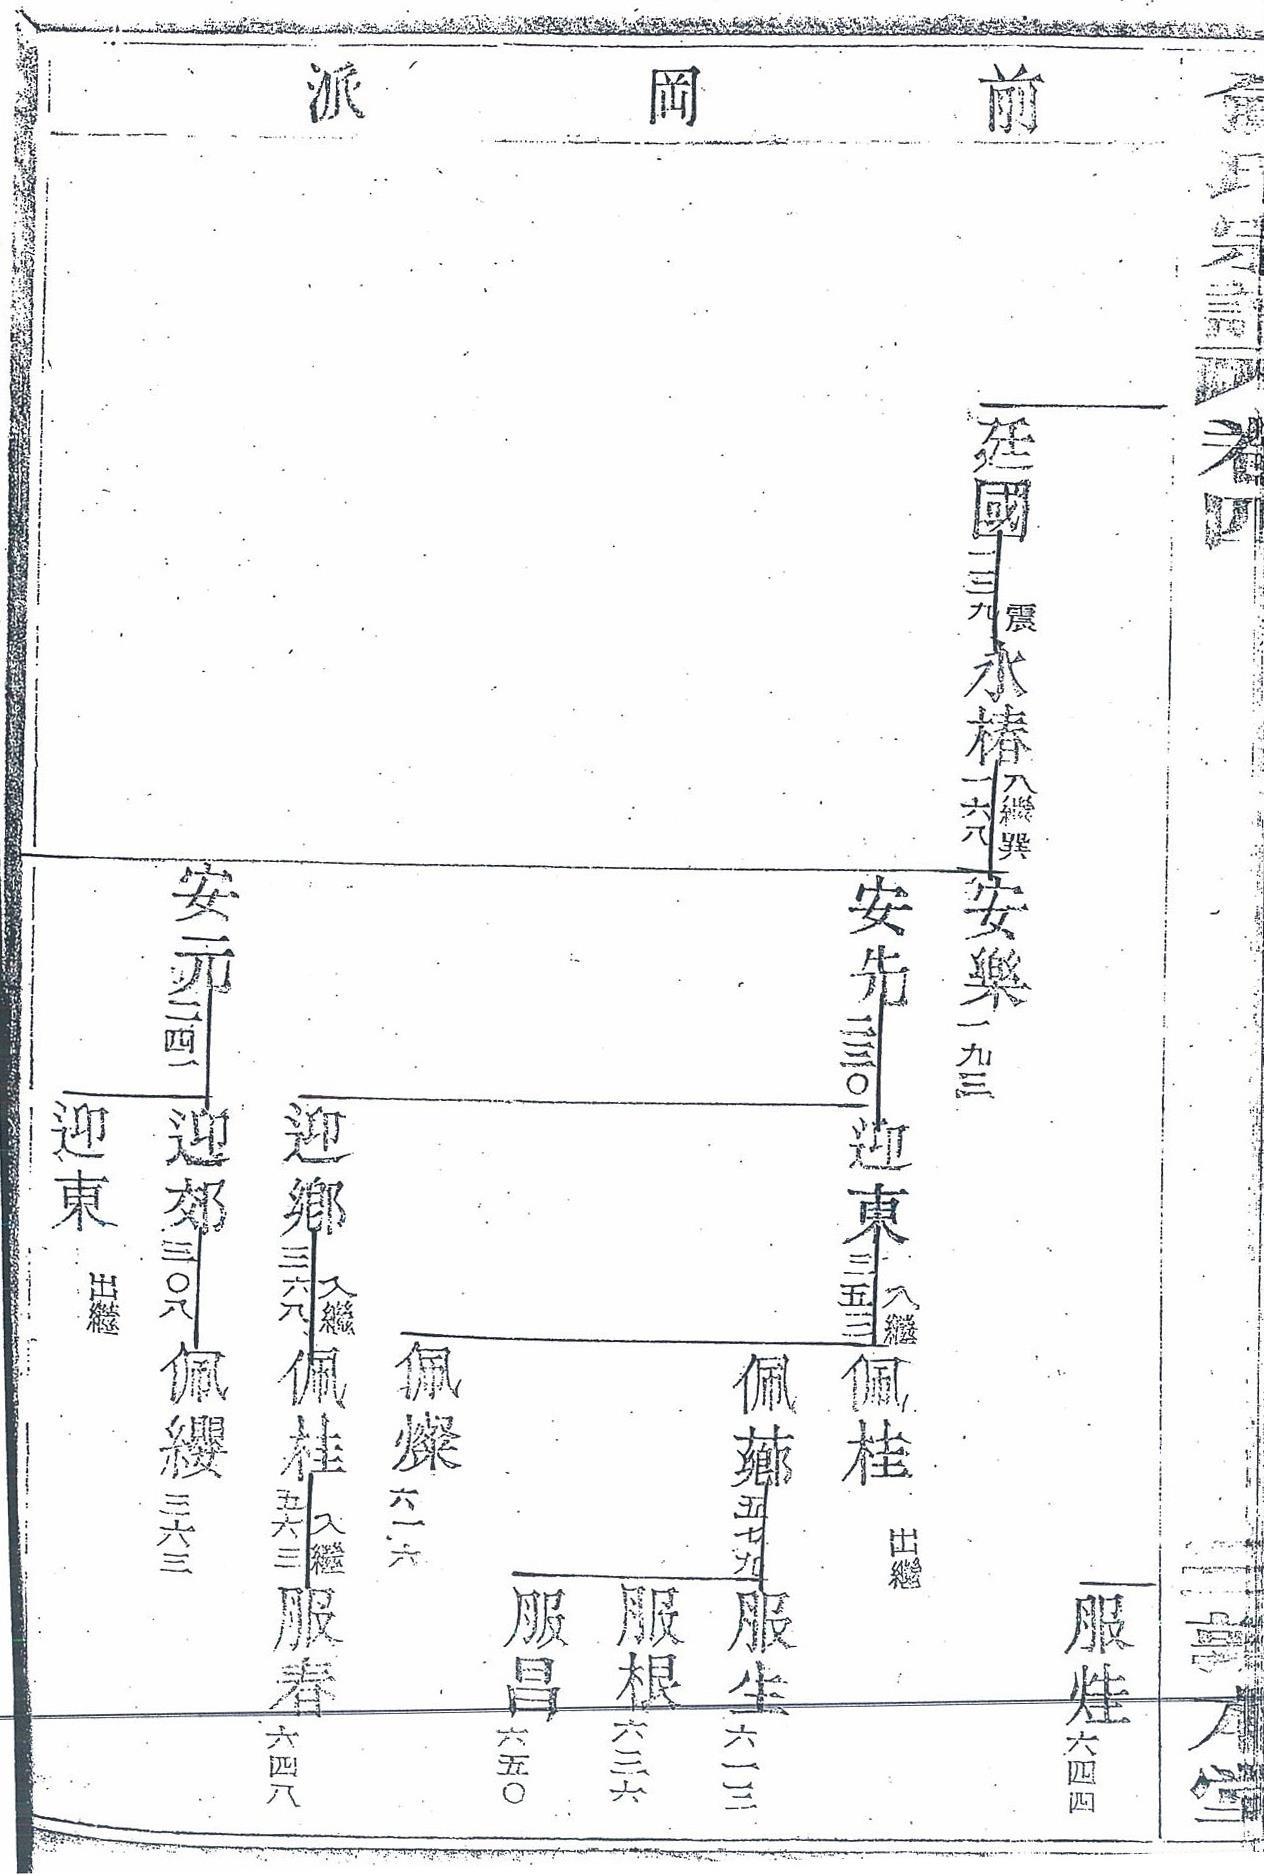 氏宗譜
卷四
前岡派
廷國 一三九
震 永椿 一六八 入繼巽
安樂 一九三
安先 二三〇
安元 二四一
迎東 三五三 入繼
迎鄉 三六八 入繼
迎郊 三〇八
迎東 出繼
佩桂 出繼
佩薌 五七九
佩燦 六一六
佩桂 五六三 入繼
佩纓 三六三
服烓 六四四
服生 六一三
服根 六三六
服昌 六五〇
服春 六四八